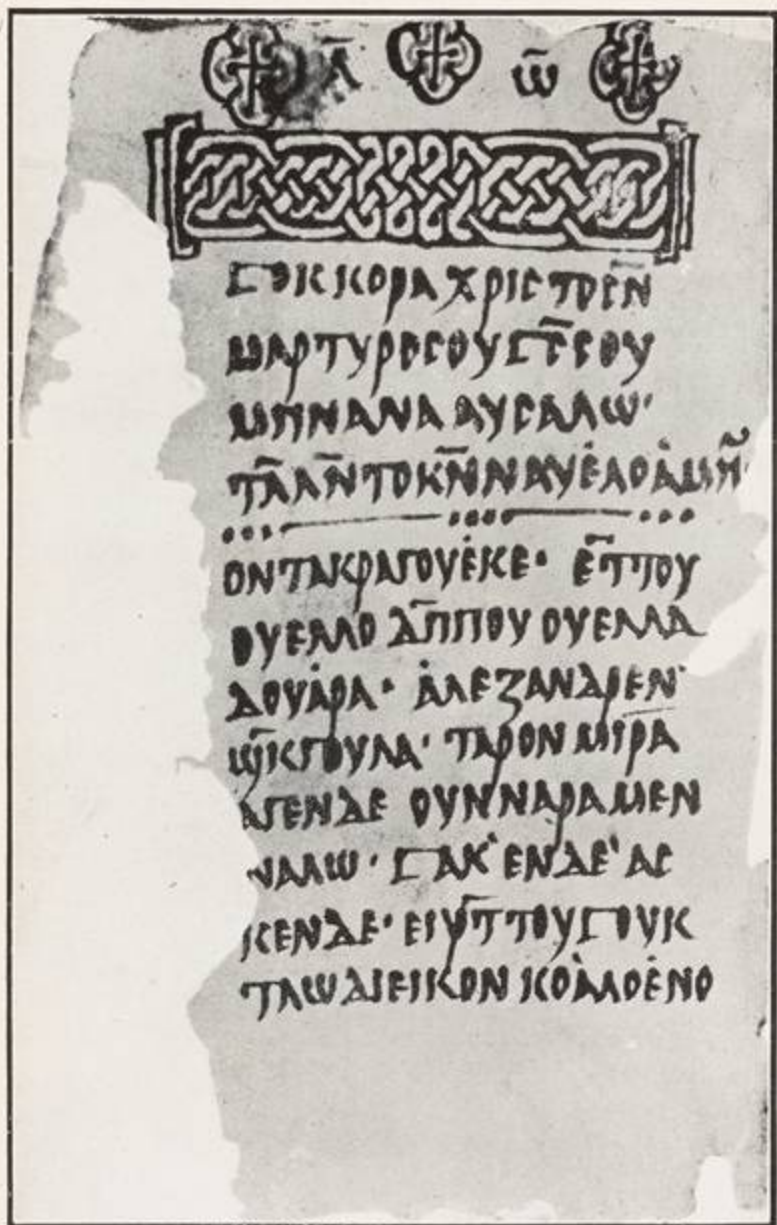 ⲁ̄ ⲱ̄
ⳟⲟⲕⲕⲟⲣⲁ ⲭⲣⲓⲥⲧⲟⲥⲛ̄
ⲙⲁⲣⲧⲩⲣⲟⲥⲟⲩ ⳟⲥ̄ⲥⲟⲩ
ⲙⲏⲛⲁⲛⲁ ⲁⲩⲥⲁⲗⲱ·
ⲧⲁ̄ⲗⲛ̄ ⲧⲟⲕⲛ̄ⲛⲁⲩⲉ̇ⲗⲟ ⲁ̇ⲙⲏⲛ̄·
ⲟⲛ ⲧⲁⲕⲣⲁⲅⲟⲩⲉ̇ⲕⲉ· ⲉⲧ̄ⲧⲟⲩ
ⲟⲩⲉⲗⲗⲟ ⲇⲡ̄ⲡⲟⲩ ⲟⲩⲉⲗⲗⲁ
ⲇⲟⲩⲁ̇ⲣⲁ· ⲁ̇ⲗⲉⲝⲁⲛⲇⲣⲉⲛ
ϣⲓ̄ⲕⲅⲟⲩⲗⲁ· ⲧⲁⲣⲟⲛ ⲙⲓⲣⲁ
ⲁⲅⲉⲛⲇⲉ ⲟⲩⲛⲛⲁⲣⲁ ⲙⲉⲛ
ⲛⲁⲗⲱ· ⳟⲁⲕ ⲉⲛⲇⲉ ⲁⲥ
ⲕⲉⲛⲇⲉ· ⲉⲓⲩⲧ̄ⲧⲟⲩⳟⲟⲩⲕ
ⲧⲗⲱ ⲇⲓⲉⲓⲕⲟⲛ ⲕⲟ̇ⲗⲟⲉ̇ⲛⲟ